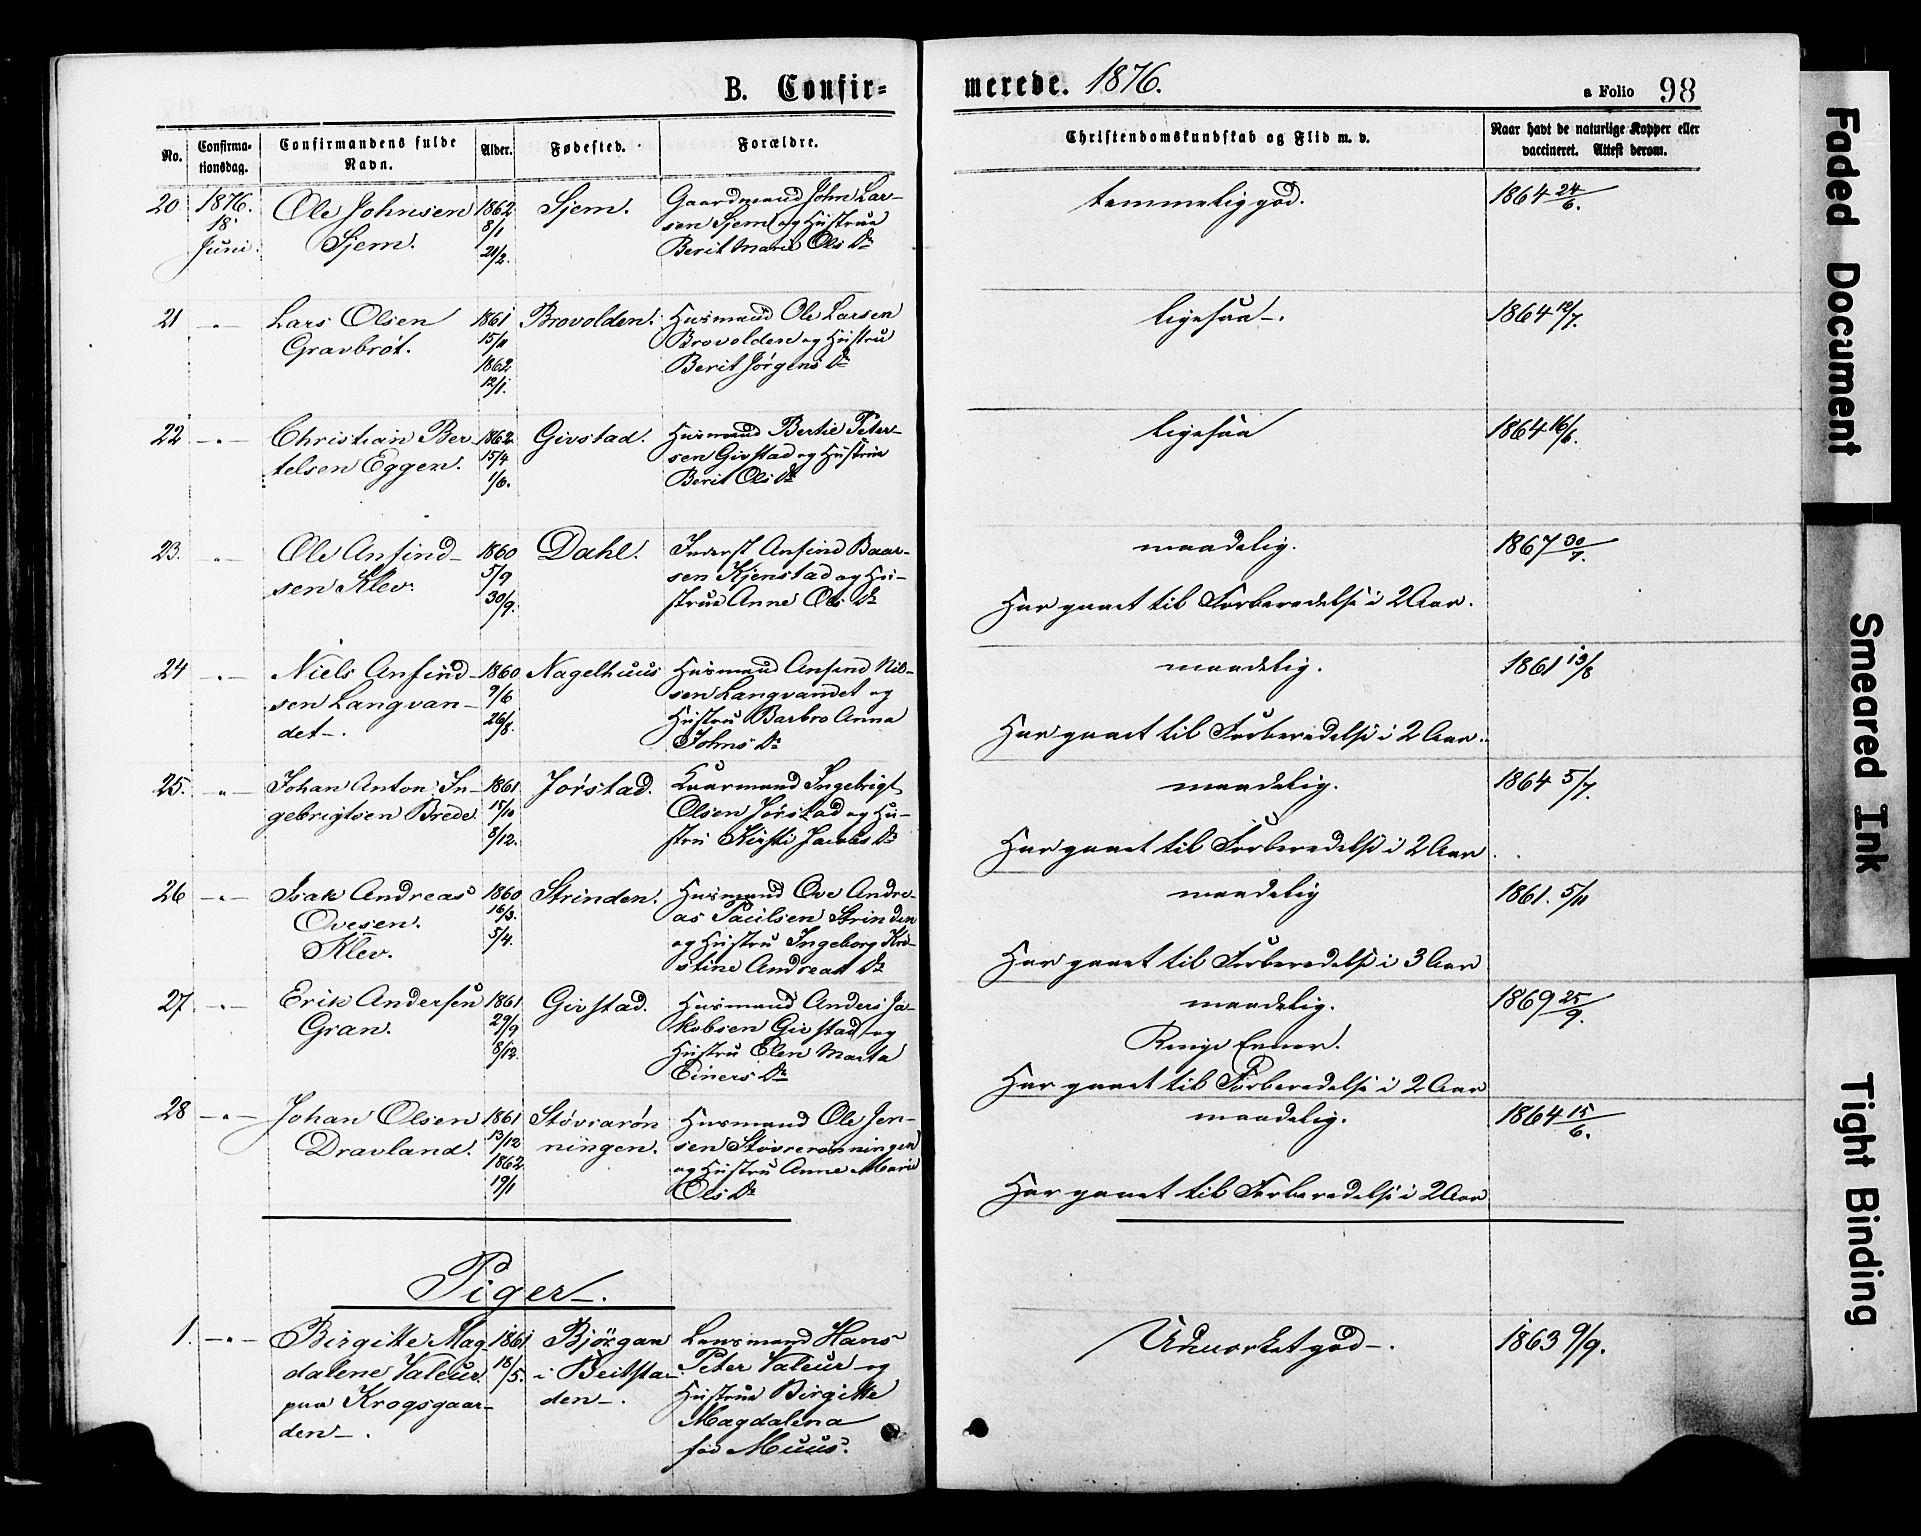 B. Confir=
merede. 1876.
a Folio 98
No.
Confirma-
tionsdag.
Confirmandens fulde
Navn.
Alder.
Fødested.
Forældre.
Christendomskundskab og Flid m. v.
Naar havt de naturlige Kopper eller
vaccineret. Attest derom.
20 1876.
18
Juni.
Ole Johnsen
Sjem.
1862
8/1
21/2.
Sjem.
Gaardmand John Lar-
sen Sjem og Hustrue
Berit Marie Ols Dr
temmelig god.
1864 24/6.
21 -"-
Lars Olsen
Gravbrøt.
1861
15/11
1862
12/1.
Brovolden.
Husmand Ole Larsen
Brovolden og Hustru
Berit Jørgens Dr
ligesaa-.
1864 12/7.
22 -"-
Christian Ber
telsen Eggen.
1862.
15/4
1/6.
Givstad.
Husmand Bertil Peter-
sen Givstad og Hustrue
Berit Ols Dr
ligesaa
1864 16/6.
23. -"-
Ole Anfind-
sen Klev.
1860
5/9
30/9.
Dahl.
Inderst Anfind Baar-
sen Kjenstad og Hu-
strue Anne Ols Dr
maadelig.
Har gaaet til Forberedelse i 2 Aar.
1867 30/7.
24 -"-
Niels Anfind-
sen Langvan-
det-.
1860
9/6
26/8.
Nagelhuus
Husmand Anfind Nil-
sen Langvandet og
Hustru Barbro Anna
Johns Dr
maadelig.
Har gaaet til Forberedelse i 2 Aar.
1861 13/8
25. "
Johan Anton In-
gebrigtsen Brede.
1861
15/10
8/12.
Jørstad.
Kaarmand Ingebrigt
Olsen Jørstad og Hu-
stru Kirsti Jacobs Dr
maadelig.
Har gaaet til Forberedelse i 2 Aar.
1864 5/7.
26 -"-
Isak Andreas
Ovesen.
Klev.
1860
16/3.
5/4.
Strinden.
Husmand Ove Andre-
as Paulsen Strinden
og Hustru Ingeborg Kri-
stine Andreas Dr
maadelig
Har gaaet til Forberedelse i 3 Aar
1861. 5/11
27 -"-
Erik Andersen
Gran.
1861
29/9
8/12.
Givstad.
Husmand Anders Ja-
kobsen Givstad og
Hustru Elen Marta
Einers Dr
maadelig.
Ringe Evner.
Har gaaet til Forberedelse i 2 Aar
1869 25/9.
28 -"-
Johan Olsen
Dravland.
1861
13/12
1862
19/1
Støvrarøn
ningen.
Husmand Ole Jen-
sen Støvrerønningen
og Hustru Anne Marie
Ols Dr
maadelig.
Har gaaet til Forberedelse i 2 Aar
1864 15/6.
Piger-.
1. -"-
Birgitte Mag
dalene Valeur.
paa Krogsgaar-
den-.
1861
18/5.
Bjørgan
i Beitsta-
den-.
Lensmand Hans
Peter Valeur og
Hustrue Birgitte
Magdalena
fød Muus.
Udmærket god-.
1863 9/9.
Faded Document
Smeared Ink
Tight Binding